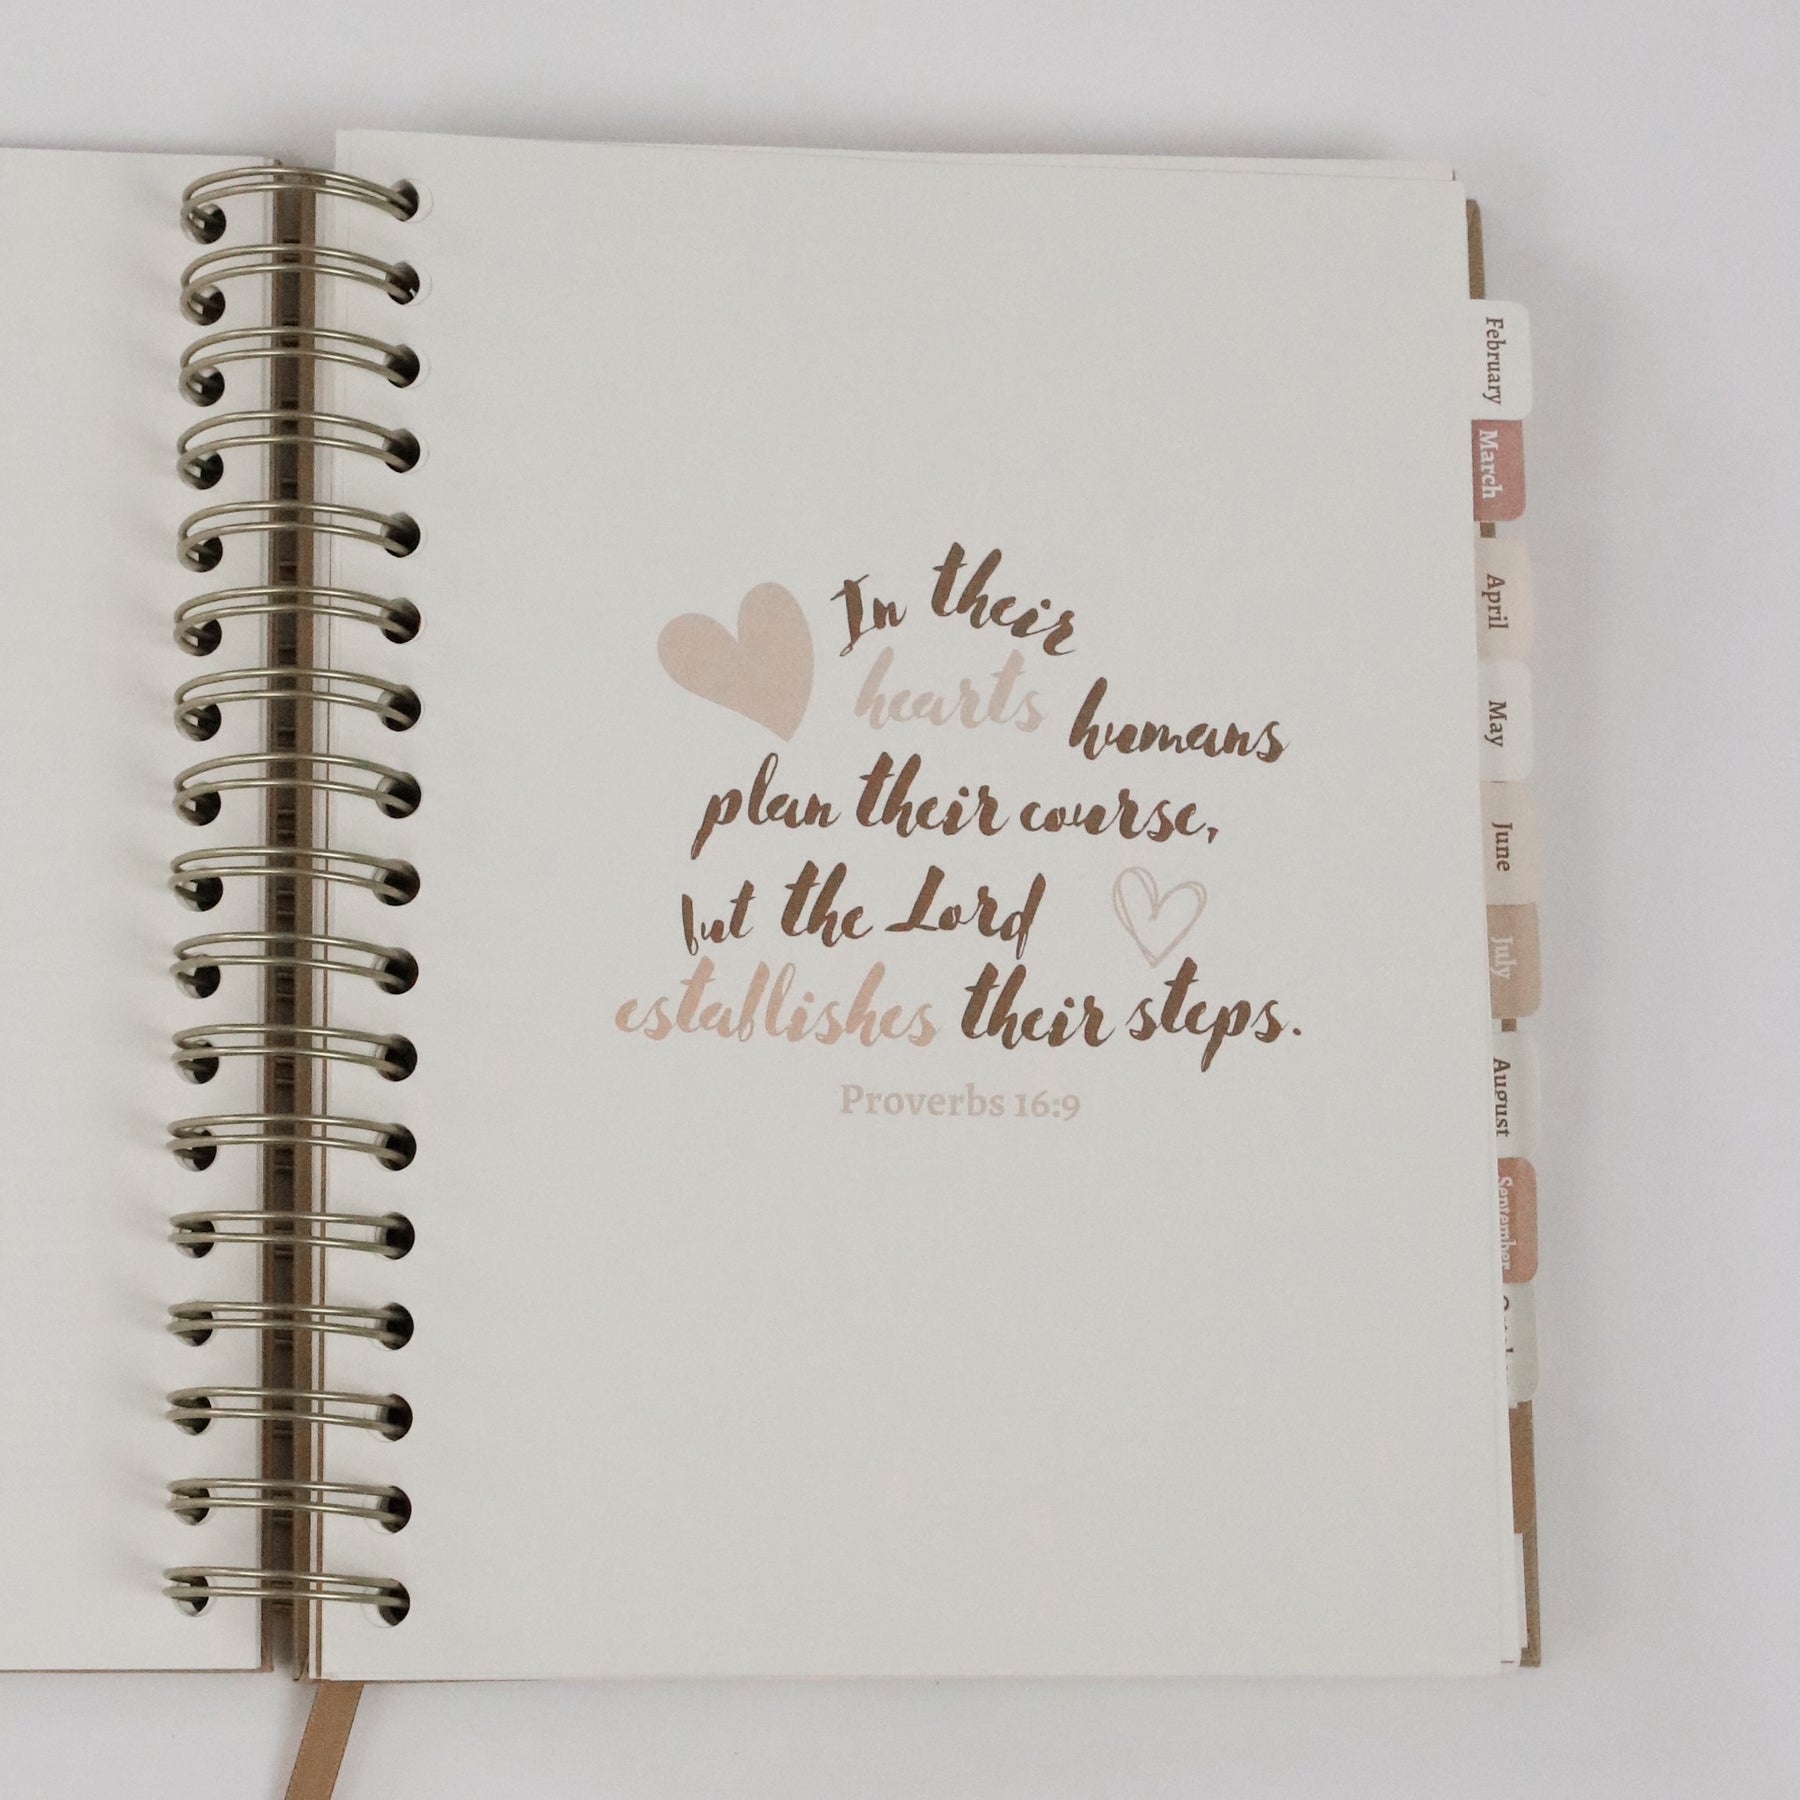 In their
hearts humans
plan their course,
but the Lord
establishes their steps.
Proverbs 16:9
February
March
April
May
June
July
August
September